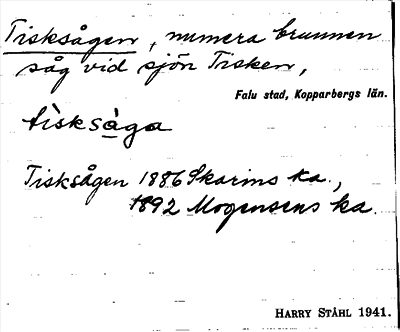 Tisksågen, numera brunnen
såg vid sjön Tisken,
Falu stad, Kopparbergs län.
tìsksåga
Tisksågen 1886 Skarins ka.,
1892 Mogensens ka.
HARRY STÅHL 1941.